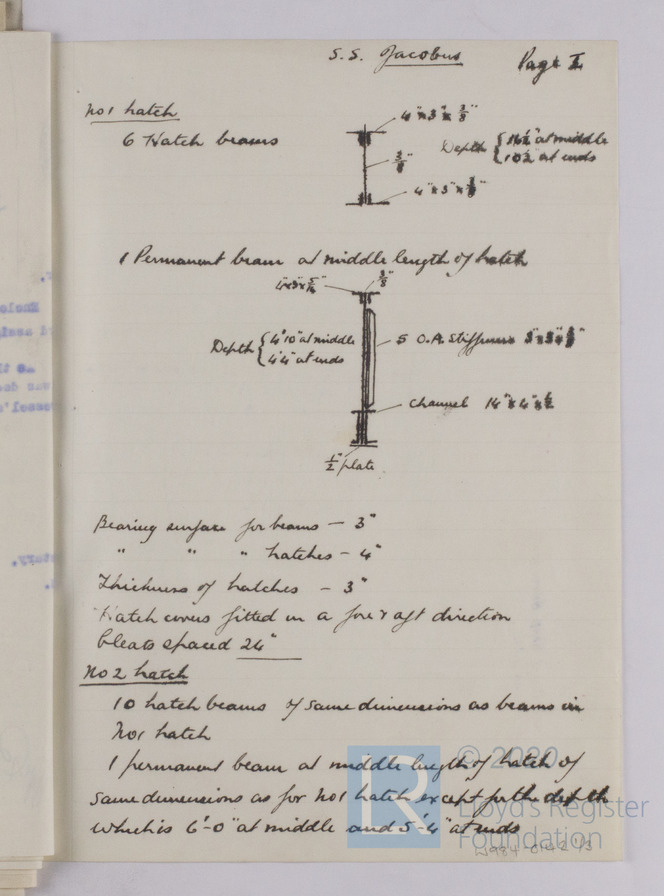 S.S. Jacobus Page I
No 1 hatch
6 Hatch beams
4" x 3" x 3/8"
Depth { 16½" at middle
10½" at ends
3/8"
4" x 3" x 3/8"
1 Permanent beam at middle length of hatch
4" x 3" x 5/16"
3/8"
Depth { 4' 10" at middle
4' 4" at ends
5 O.A. Stiffeners
Channel 14" x 4" x ½
½" plate
Bearing surface for beams – 3"
" " " hatches – 4"
Thickness of hatches – 3"
Hatch covers fitted in a fore & aft direction
Cleats spaced 24"
No 2 hatch
10 hatch beams of same dimensions as beams in
No 1 hatch
1 permanent beam at middle length of hatch of
same dimensions as for No 1 hatch except for the depth
which is 6'-0" at middle and 5'-4" at ends
© 2020
Lloyd's Register
Foundation
W984-0142 1/3